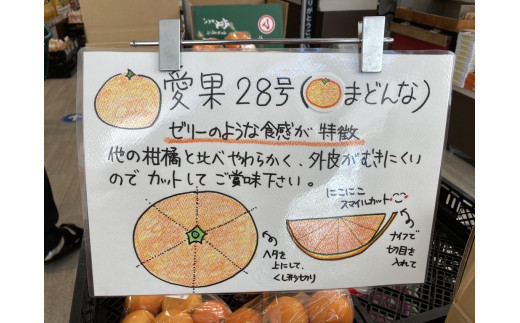 愛果28号(まどんな)
ゼリーのような食感が特徴
他の柑橘と比べやわらかく、外皮がむきにくい
のでカットしてご賞味下さい。
ヘタを
上にして、
くし形切り
にこにこ
スマイルカット
ナイフで
切目を
入れて